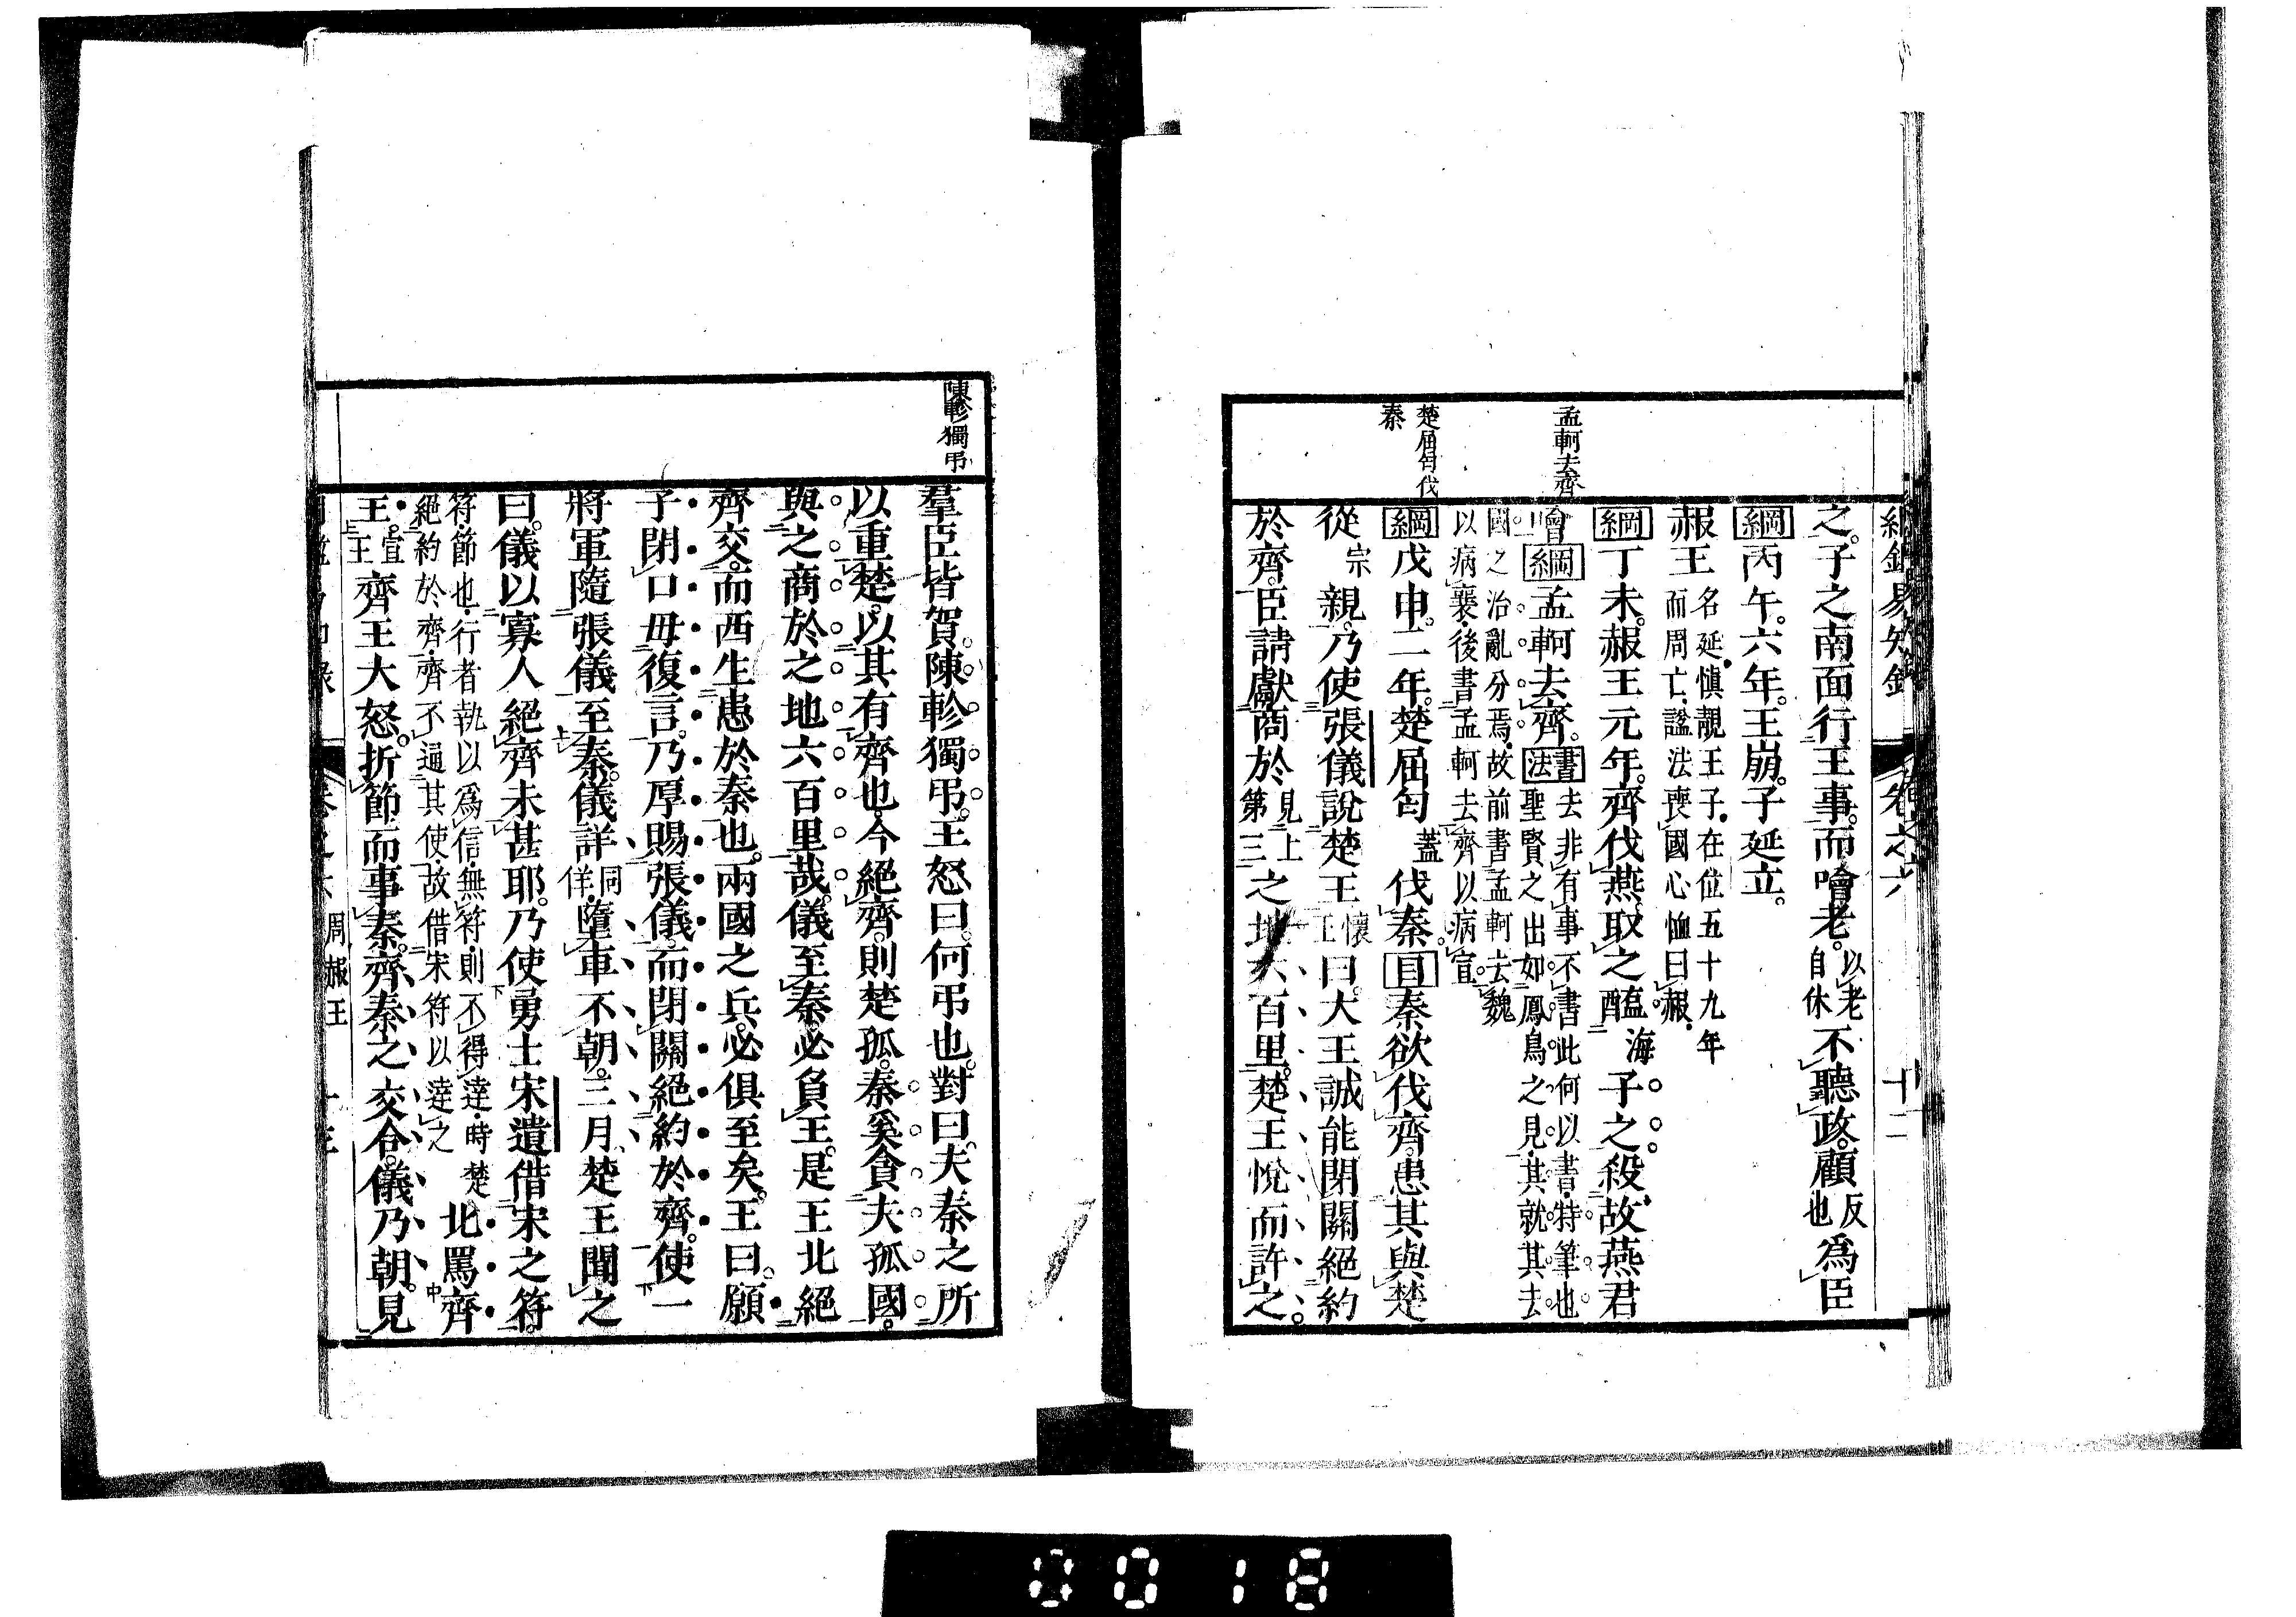 綱鑑易知錄 卷之六 十二
孟軻去齊
楚屈匄伐
秦
之。子之南面行王事。而噲老。以老自休不聽政。顧反也爲臣
綱丙午。六年。王崩。子延立。
赧王名延愼靚王子在位五十九年而周亡謚法喪國心恤曰赧
綱丁未。赧王元年。齊伐燕。取之。醢海子之。殺故燕君
噲綱孟軻去齊。書法去非有事不書此何以書特筆也聖賢之出如鳳鳥之見其就其去
國之治亂分焉故前書孟軻去魏以病襄後書孟軻去齊以病宣
綱戊申。二年。楚屈匄蓋伐秦。目秦欲伐齊。患其與楚
從宗親。乃使張儀說楚王懷王曰。大王誠能閉關絕約
於齊。臣請獻商於見上第三之地六百里。楚王悅而許之。
陳軫獨弔
羣臣皆賀。陳軫獨弔。王怒曰。何弔也。對曰。夫秦之所
以重楚。以其有齊也。今絕齊。則楚孤。秦奚貪夫孤國。
與之商於之地六百里哉。儀至秦。必負王。是王北絕
齊交。而西生患於秦也。兩國之兵。必俱至矣。王曰。願
子閉口毋復言。乃厚賜張儀。而閉關絕約於齊。使一
將軍隨張儀至秦。儀詳同佯墮車不朝。三月。楚王聞之
曰。儀以寡人絕齊未甚耶。乃使勇士宋遺借宋之符。
符節也行者執以爲信無符則不得達時楚絕約於齊齊不通其使故借宋符以達之北罵齊
王。宣王齊王大怒。折節而事秦。齊秦之交合。儀乃朝。見
周赧王